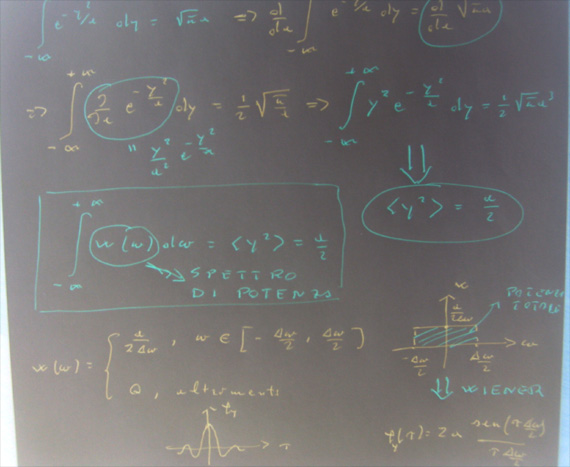 ∫_{-∞} e^{-y²/u} dy = √πu => d/du ∫_{-∞} e^{-y²/u} dy = d/du √πu
=> ∫_{-∞}^{+∞} ∂/∂u e^{-y²/u} dy = 1/2 √π/u => ∫_{-∞}^{+∞} y² e^{-y²/u} dy = 1/2 √πu³
" y²/u² e^{-y²/u}
⇓
<y²> = u/2
∫_{-∞}^{+∞} w(ω) dω = <y²> = u/2
SPETTRO
DI POTENZA
w(ω) = { u/2Δω , ω ∈ [-Δω/2, Δω/2]
0, altrimenti
w
u/2Δω
POTENZA
TOTALE
-Δω/2 Δω/2 ω
⇓ WIENER
f_y τ
f_y(τ) = 2u sen(τ Δω/2) / τ Δω/2